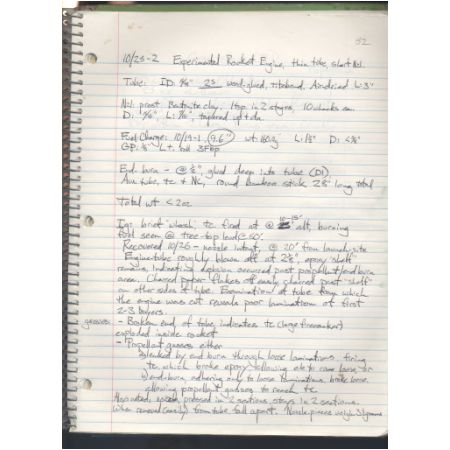 52
10/25-2 Experimental Rocket Engine, thin tube, short Nzl.
Tube: ID: 9/16" 25 wood-glued, titebond, Airdried L: 3"
Nzl: prest Bentonite clay, 1 tsp in 2 stages, 10 whacks ea.
D: L: tapered up + dn
Fuel Charge: 10/19-1, 9.6" wt: L: D:
GP: Lt. ball 3F
End-burn - @ 1/2", glued deep into tube
tube, tc + NC, round Bamboo stick long total
Total wt < 2oz
Ig: brief "whoosh", tc fired at @ 10-15' alt, burning
fuel seen @ tree-top level @ 50'.
Recovered 10/26 - nozzle intact, @ 20' from launch-site
Engine-tube roughly blown off at epoxy shelf
remains, indicating explosion occurred post propellant/end burn
area. Charred paper flakes off easily charred past shelf
on other sides of tube. Examination of tube from which
the engine was cut reveals poor lamination of first
2-3 layers.
gasses - Broken end of tube indicates tc (large firecracker)
exploded inside rocket
- Propellant gasses either
a) leaked by end burn through loose laminations, firing
tc which broke epoxy allowing eb to come loose or
b) end-burn, adhering only to loose laminations, broke loose
allowing propellant gasses to reach tc
Also noted, pressed in 2 sections, stays in 2 sections.
(When removed (easily) from tube fall apart. Nozzle pieces weigh grams